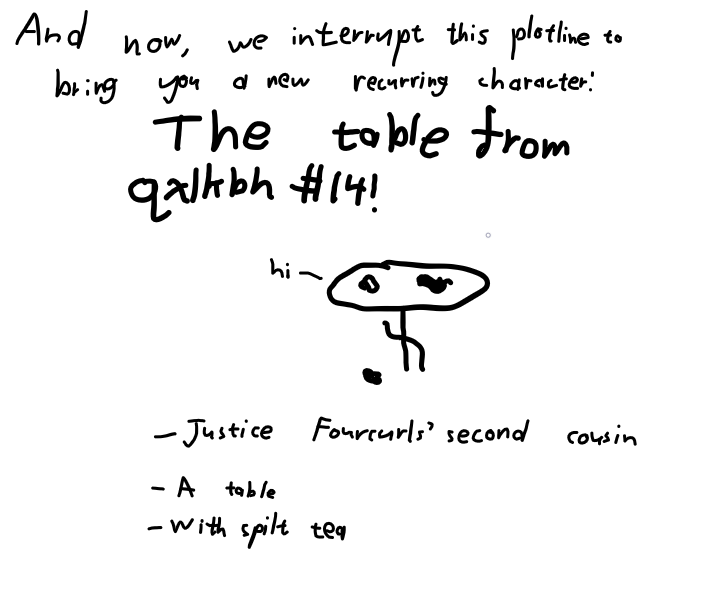 And now, we interrupt this plotline to
bring you a new recurring character:
The table from
qxlkbh #14!
hi
- Justice Fourcurls' second cousin
- A table
- With spilt tea